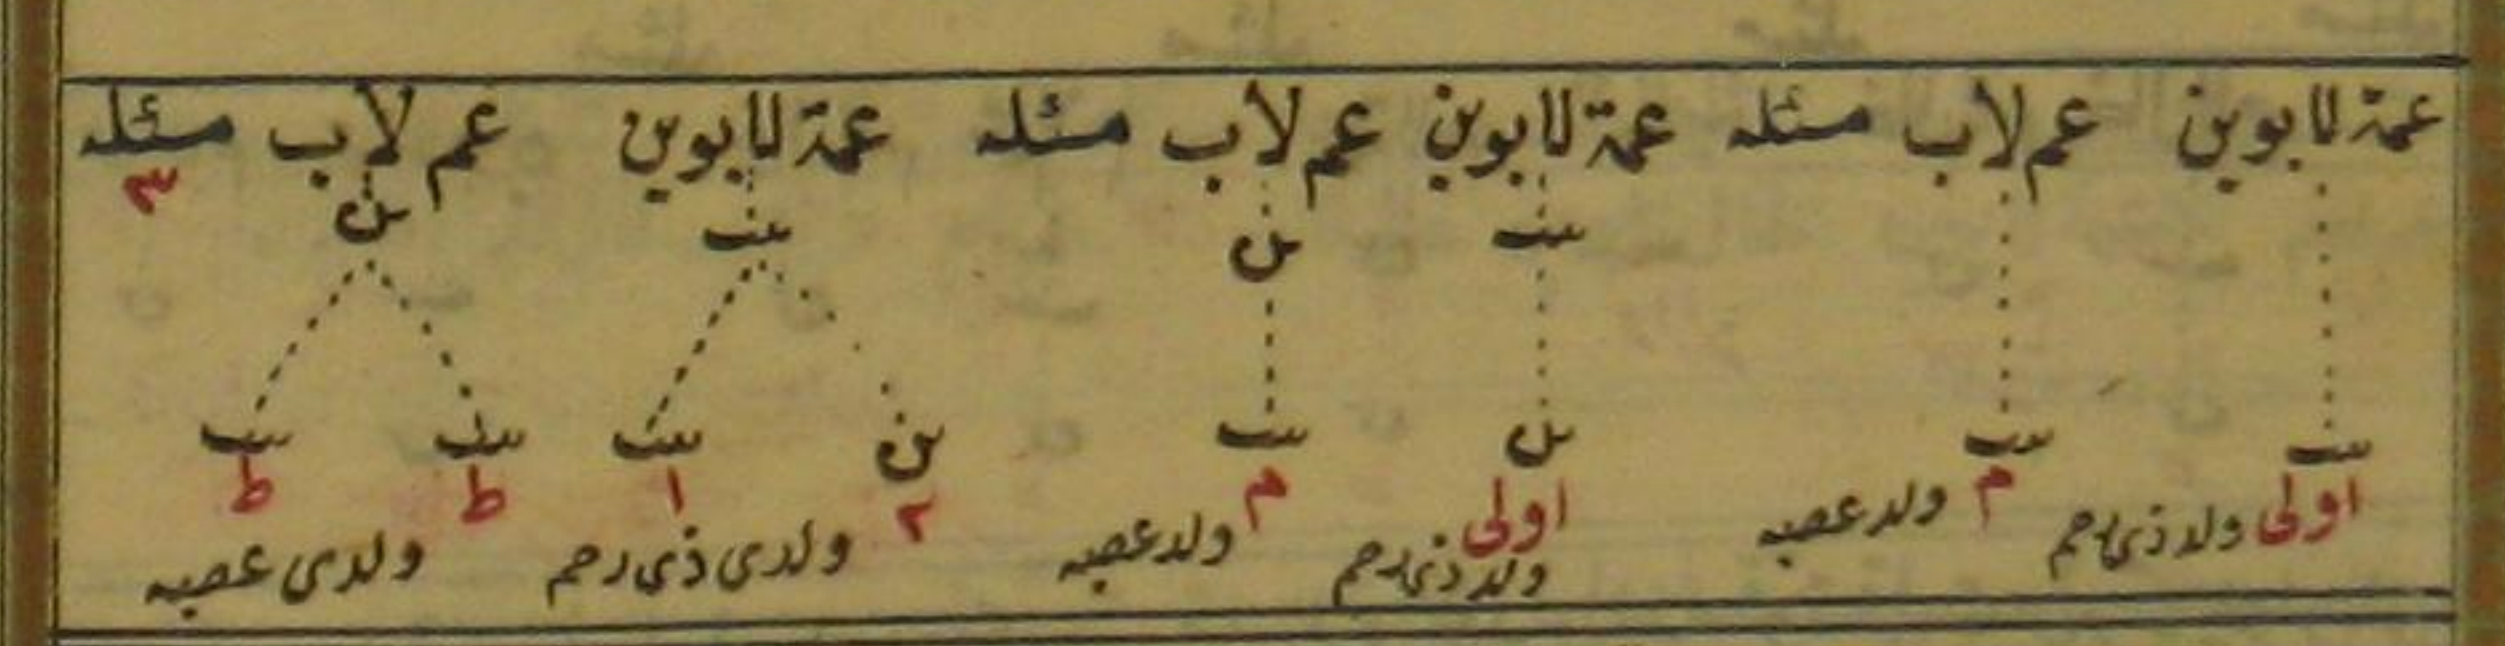 عمة لابوين عم لاب مسئله عمة لابوين عم لاب مسئله عمة لابوين عم لاب مسئله
٣
بنت بن بنت بن
بنت بنت بن بنت بن بنت بنت بنت
اولى م اولى م ٢ ١ ط ط
ولد ذى رحم ولد عصبه ولد ذى رحم ولد عصبه ولدى ذى رحم ولدى عصبه